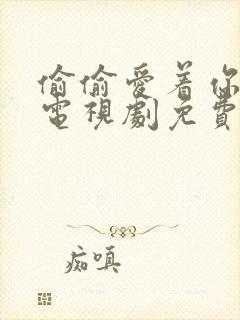 偷偷愛着你
電視劇免費
痴嗔